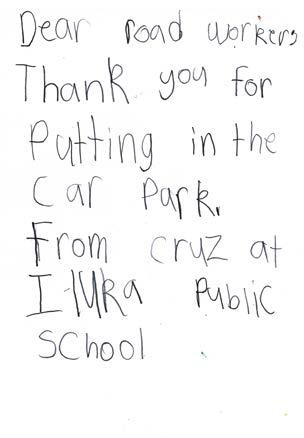 Dear road workers
Thank you for
Putting in the
Car Park.
From cruz at
Iluka Public
School